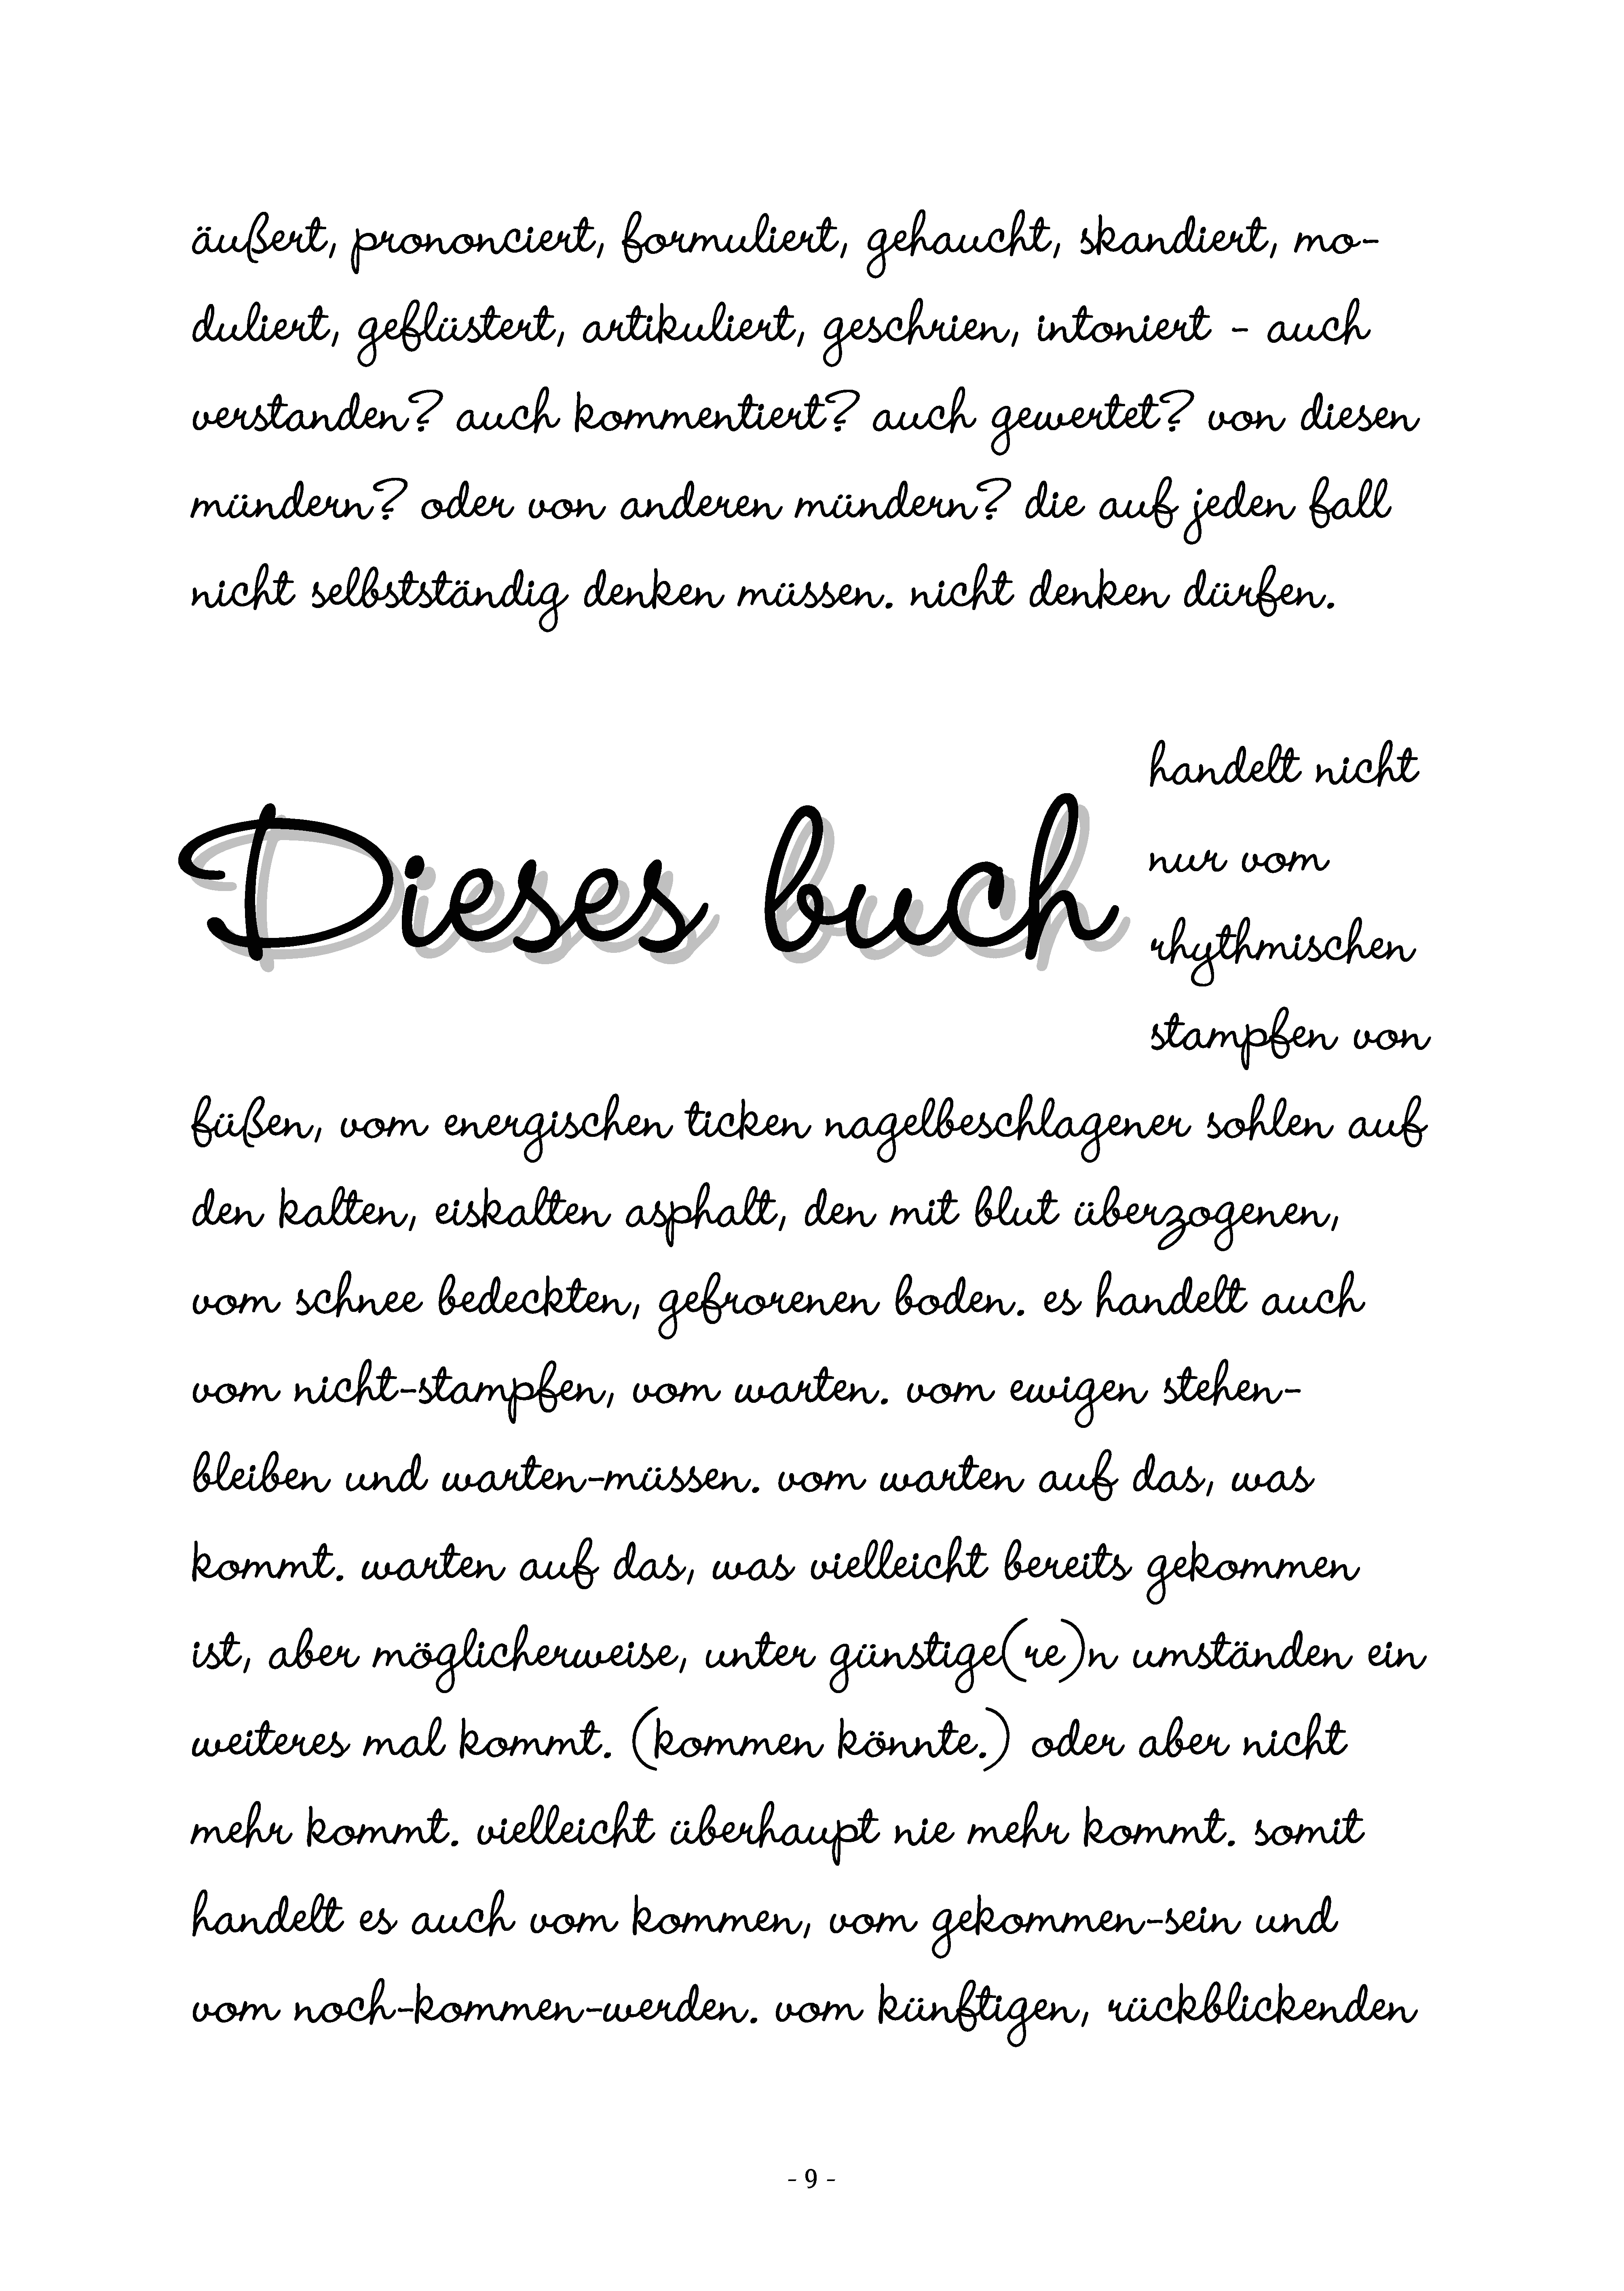 äußert, prononciert, formuliert, gehaucht, skandiert, mo-
duliert, geflüstert, artikuliert, geschrien, intoniert - auch
verstanden? auch kommentiert? auch gewertet? von diesen
mündern? oder von anderen mündern? die auf jeden fall
nicht selbstständig denken müssen. nicht denken dürfen.
Dieses buch
handelt nicht
nur vom
rhythmischen
stampfen von
füßen, vom energischen ticken nagelbeschlagener sohlen auf
den kalten, eiskalten asphalt, den mit blut überzogenen,
vom schnee bedeckten, gefrorenen boden. es handelt auch
vom nicht-stampfen, vom warten. vom ewigen stehen-
bleiben und warten-müssen. vom warten auf das, was
kommt. warten auf das, was vielleicht bereits gekommen
ist, aber möglicherweise, unter günstige(re)n umständen ein
weiteres mal kommt. (kommen könnte.) oder aber nicht
mehr kommt. vielleicht überhaupt nie mehr kommt. somit
handelt es auch vom kommen, vom gekommen-sein und
vom noch-kommen-werden. vom künftigen, rückblickenden
- 9 -